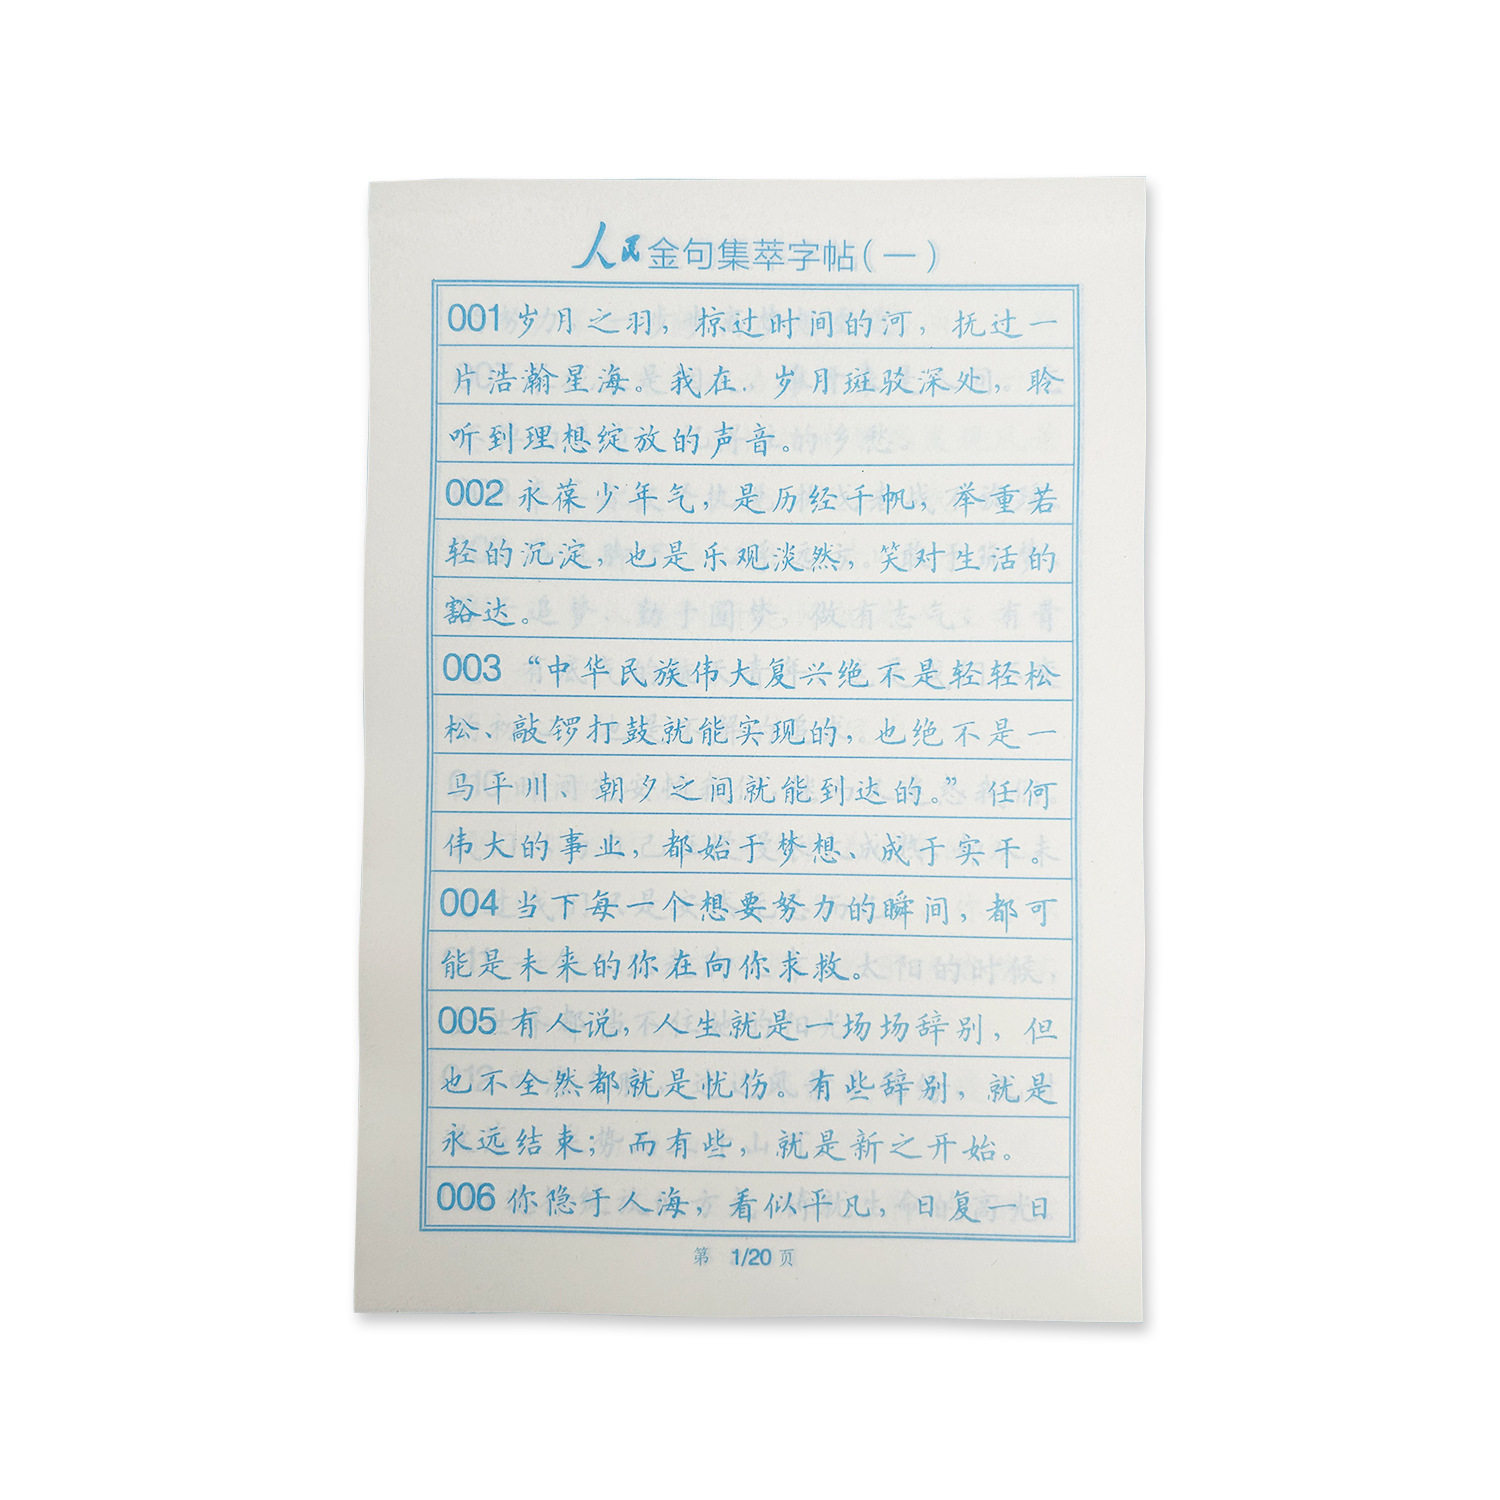 人民金句集萃字帖(一)
001岁月之羽，掠过时间的河，抚过一
片浩瀚星海。我在．岁月斑驳深处，聆
听到理想绽放的声音。
002 永葆少年气，是历经千帆，举重若
轻的沉淀，也是乐观淡然，笑对生活的
豁达。
003 “中华民族伟大复兴绝不是轻轻松
松、敲锣打鼓就能实现的，也绝不是一
马平川、朝夕之间就能到达的。”任何
伟大的事业，都始于梦想、成于实干。
004 当下每一个想要努力的瞬间，都可
能是未来的你在向你求救。
005 有人说，人生就是一场场辞别，但
也不全然都就是忧伤。有些辞别，就是
永远结束；而有些，就是新之开始。
006 你隐于人海，看似平凡，日复一日
第 1/20 页